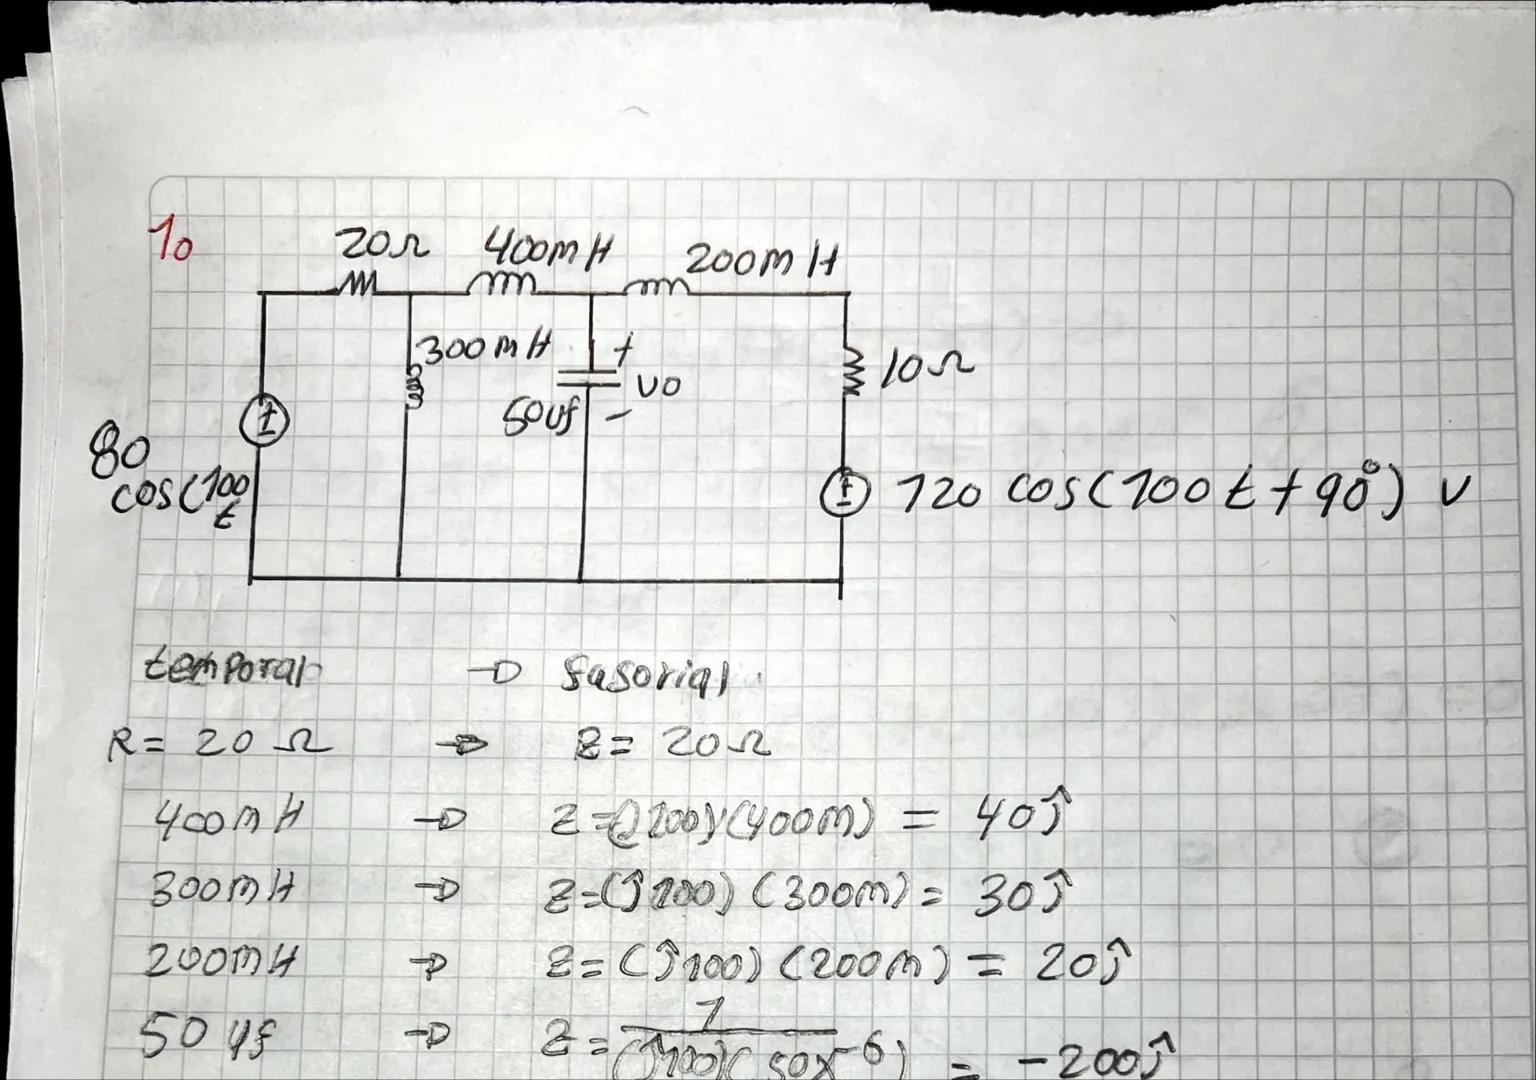 1o
20Ω 400mH 200mH
300mH + 10Ω
50uf vo
-
80 cos(100t
120 cos(100t+90°) v
temporal → fasorial
R = 20 Ω → Z = 20Ω
400mH → Z=(j100)(400m) = 40ĵ
300mH → Z=(ĵ100)(300m) = 30ĵ
200mH → Z=(ĵ100)(200m) = 20ĵ
50 uf → Z = 1/(ĵ100)(50x^-6) = -200ĵ